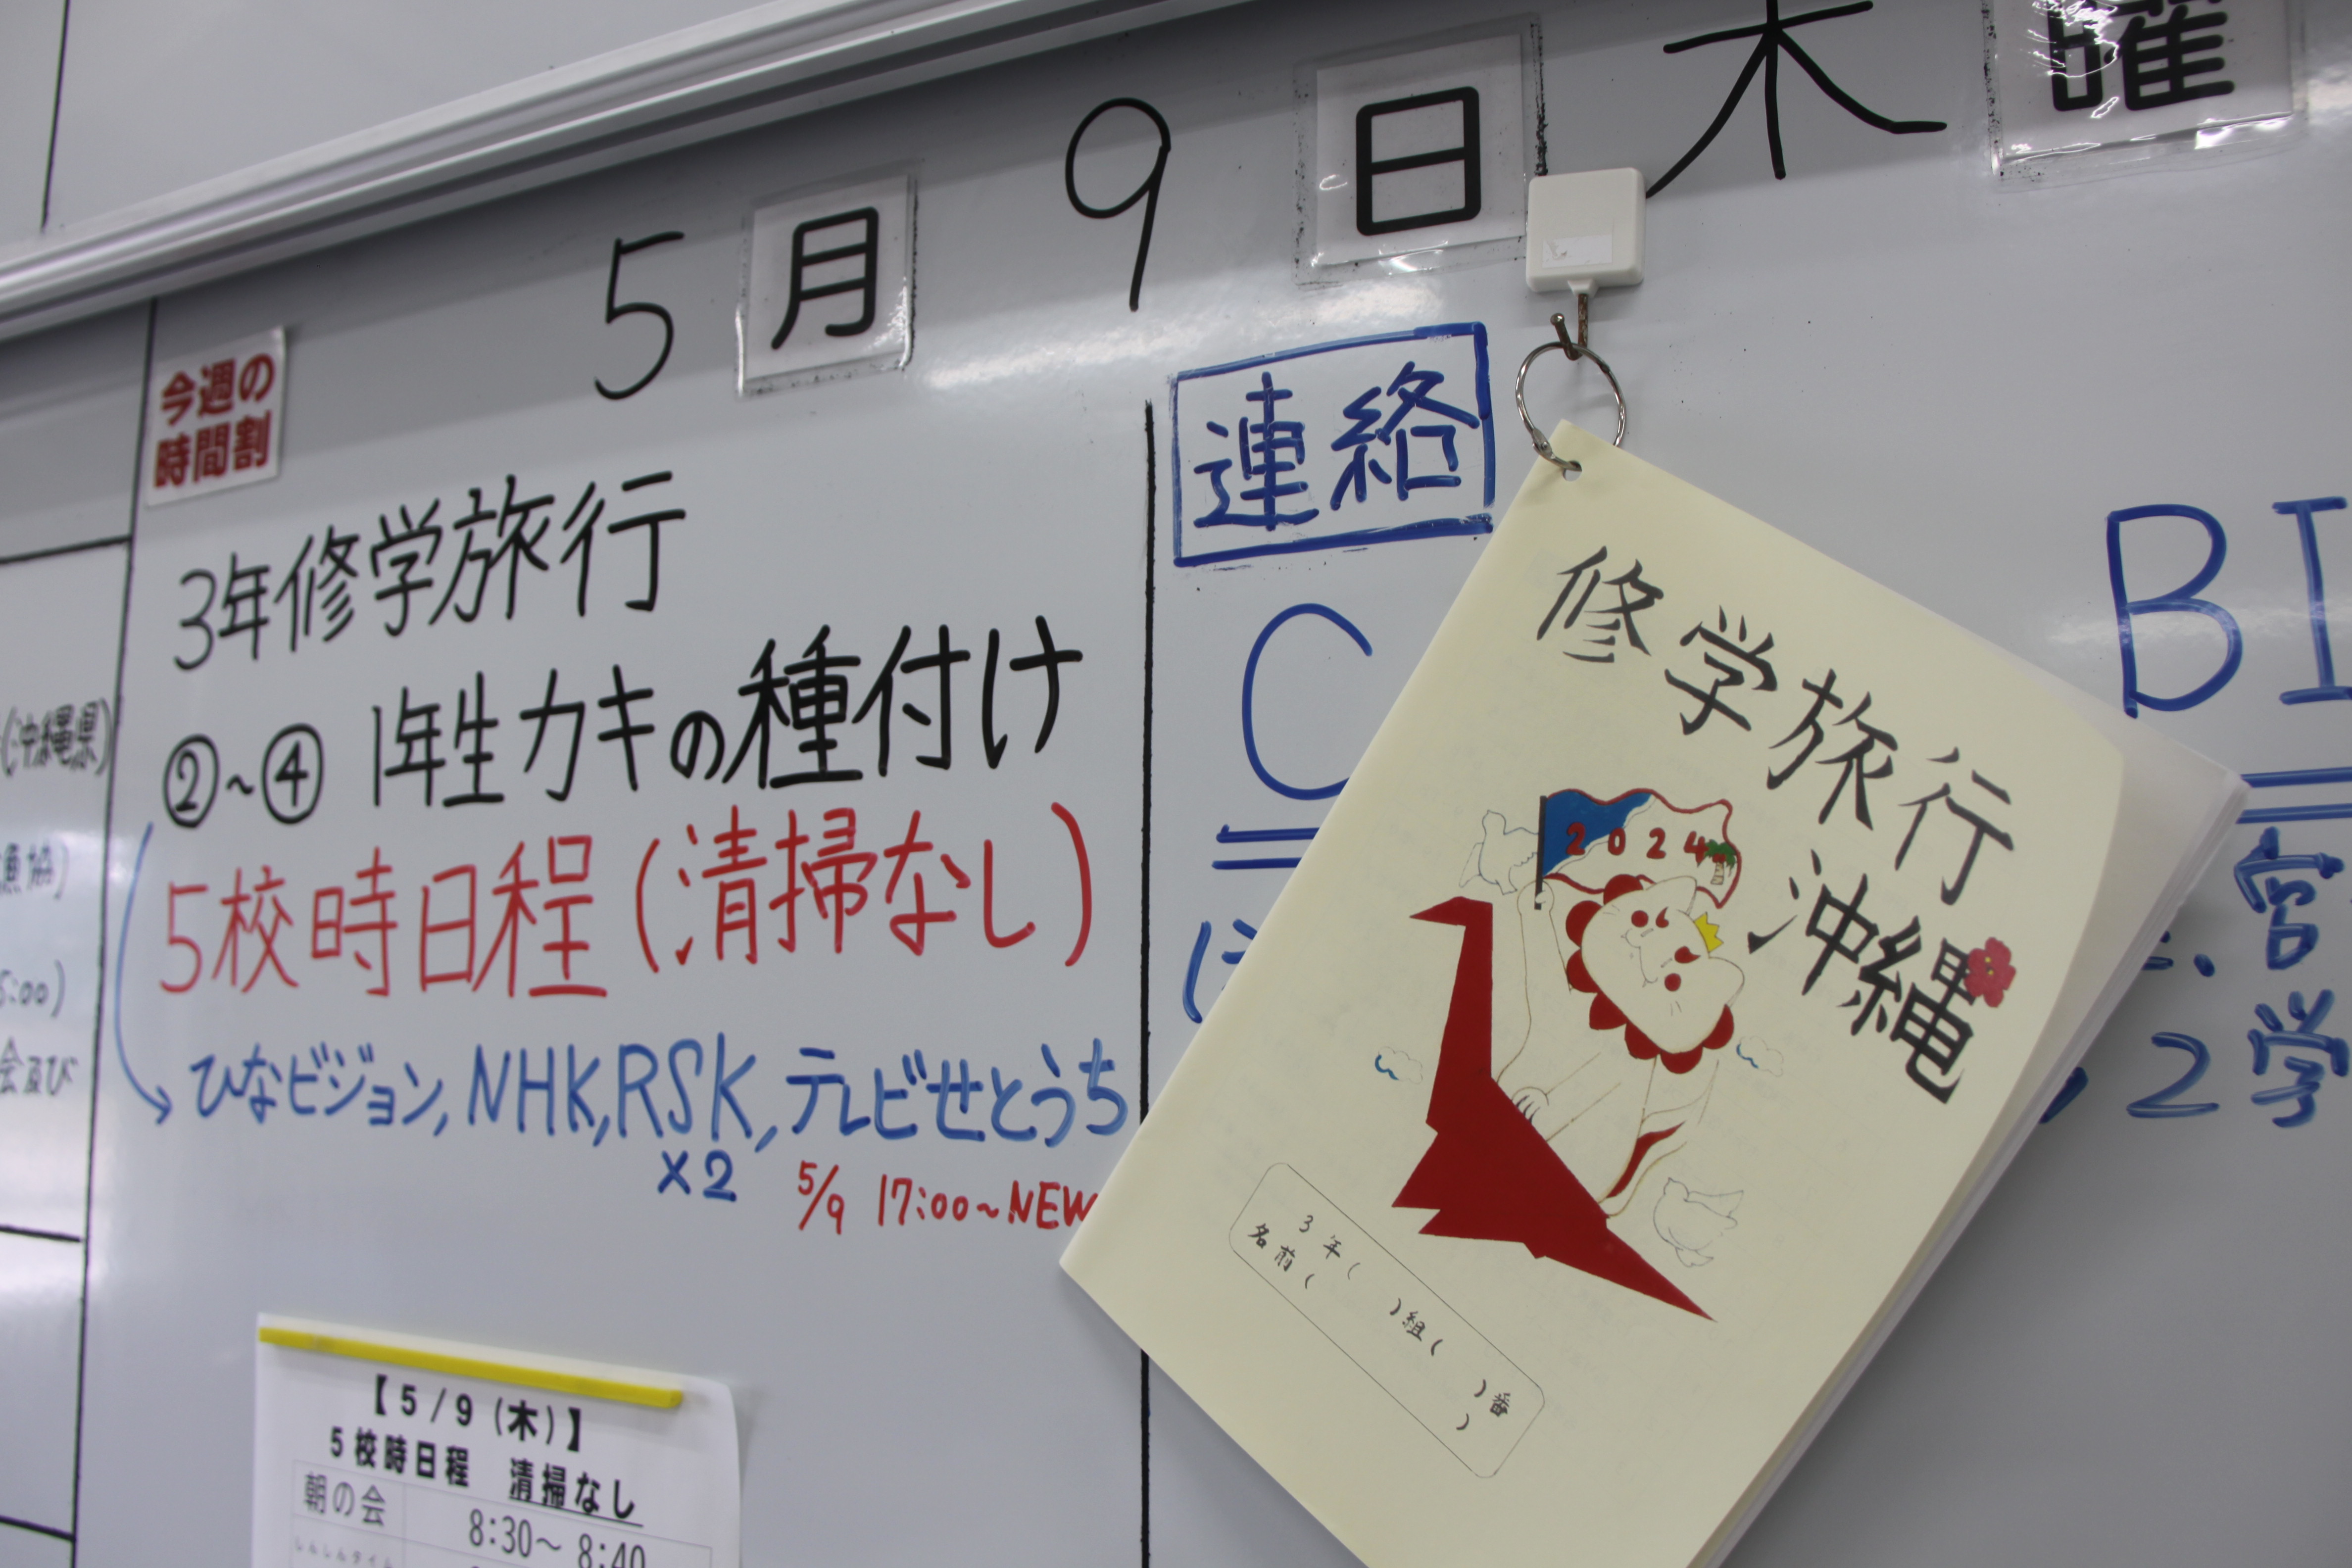 5月9日木曜
今週の
時間割
3年修学旅行
②～④ 1年生カキの種付け
5校時日程(清掃なし)
ひなビジョン, NHK, RSK, テレビせとうち
×2
5/9 17:00～NEW
【5/9(木)】
5校時日程 清掃なし
朝の会 8:30～8:40
(沖縄県)
漁協)
5:00)
会及び
連絡
C
BI
宮
2学
修学旅行
沖縄
2024
3年( )組( )番
名前( )